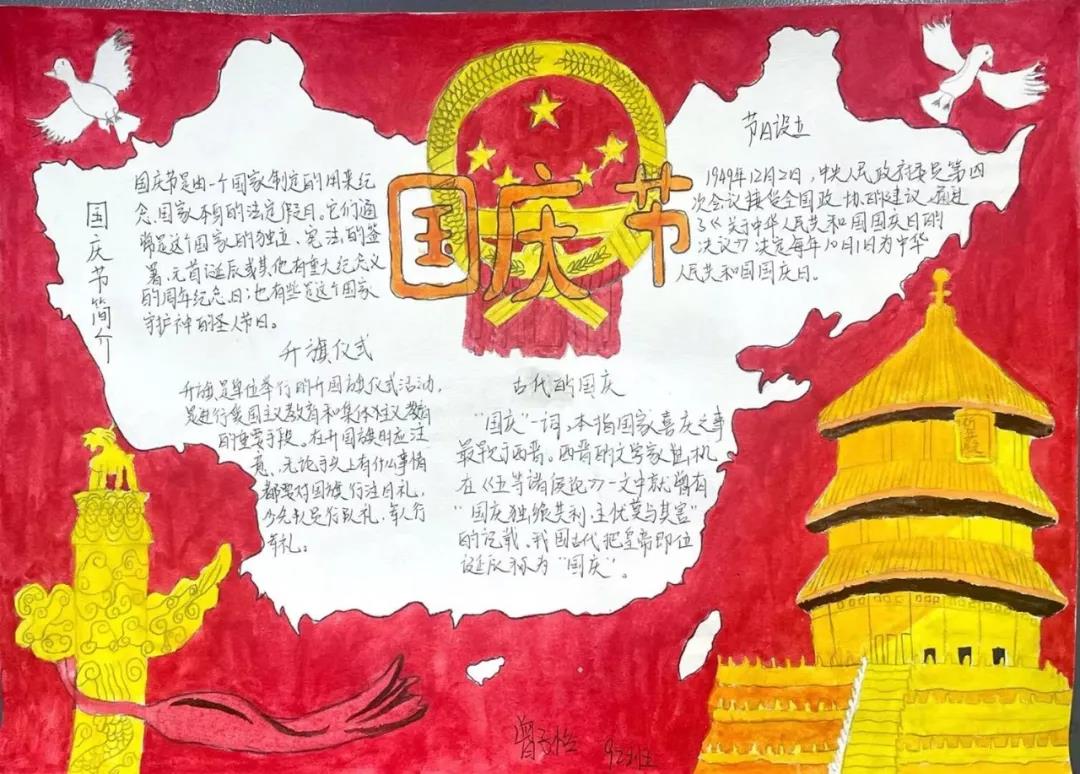 国庆节
国庆节简介
国庆节是由一个国家制定的用来纪
念国家本身的法定假日。它们通
常是这个国家的独立、宪法的签
署、元首诞辰或其他有重大纪念意义
的周年纪念日;也有些是这个国家
守护神的圣人节日。
升旗仪式
升旗是单位举行的升国旗仪式活动,
是进行爱国主义教育和集体主义教育
的重要手段。在升国旗时应注
意、无论手头上有什么事情
都要对国旗行注目礼,
少先队员行队礼,军人行
军礼。
节日设立
1949年12月2日,中央人民政府委员第四
次会议接受全国政协的建议,通过
了《关于中华人民共和国国庆日的
决议》决定每年10月1日为中华
人民共和国国庆日。
古代的国庆
“国庆”一词,本指国家喜庆之事
最早于西晋。西晋的文学家陆机
在《五等诸侯论》一文中就曾有
“国庆独飨其利,主忧莫与其害”
的记载、我国古代把皇帝即位
诞辰称为“国庆”。
祈年殿